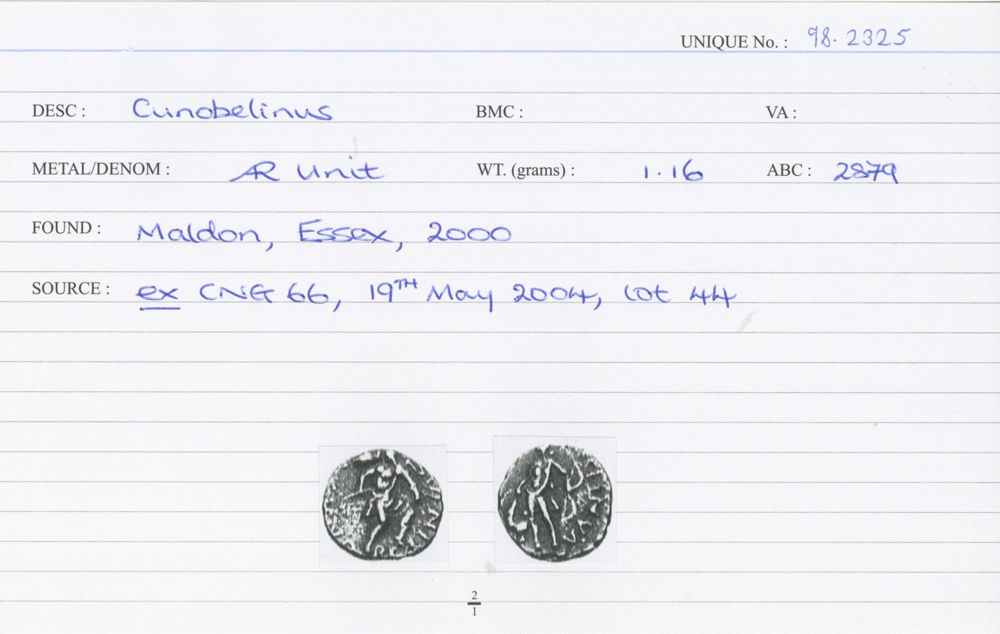 UNIQUE No. : 98.2325
DESC : Cunobelinus BMC : VA :
METAL/DENOM : AR Unit WT. (grams) : 1.16 ABC : 2879
FOUND : Maldon, Essex, 2000
SOURCE : ex CNG 66, 19TH May 2004, lot 44
2
1